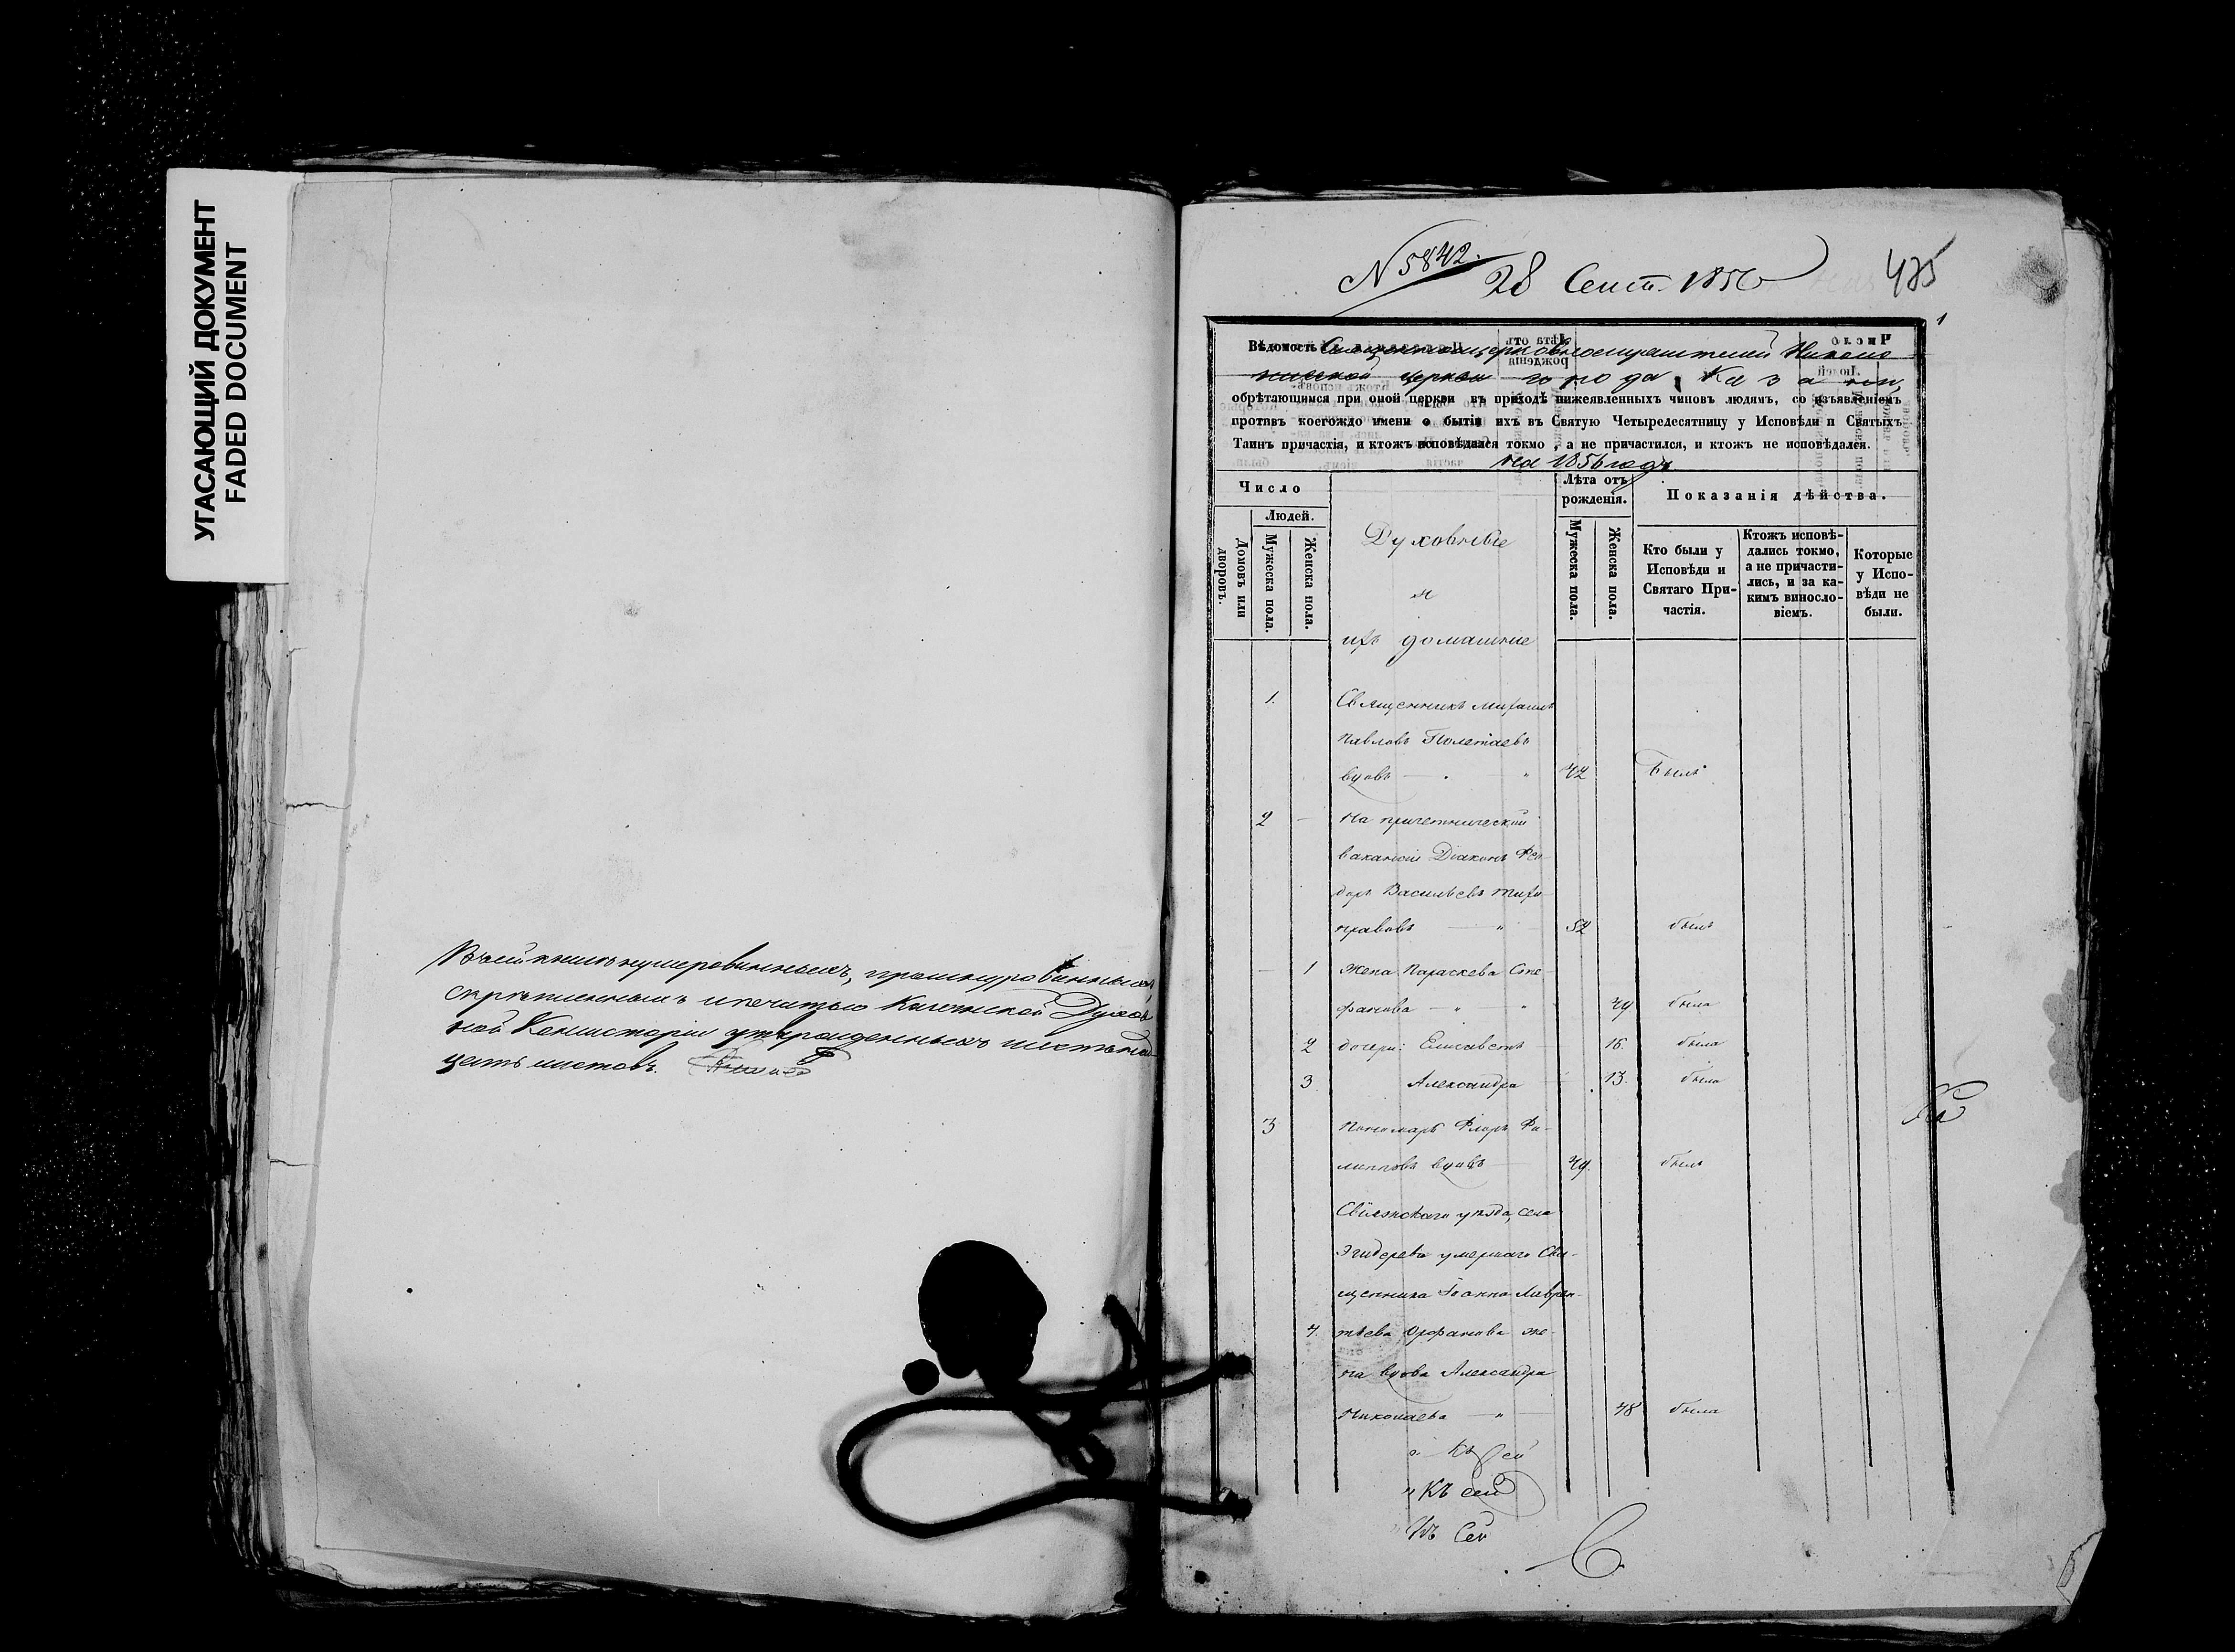 УГАСАЮЩИЙ ДОКУМЕНТ
FADED DOCUMENT
Въ сей книгѣ нумерованныхъ, прошнурованныхъ,
скрѣпленныхъ и печатью Казанской Духов
ной Консисторіи утвержденныхъ шестьнад
цать листовъ.
N 5842.
28 Сент. 1856
485
1
Вѣдомость
церкви города Казани,
обрѣтающимся при оной церкви въ приходѣ нижеявленныхъ чиновъ людямъ, со изъявленіемъ
противъ коегождо имени о бытіи ихъ въ Святую Четыредесятницу у Исповѣди и Святыхъ
Таинъ причастія, и ктожъ исповѣдался токмо, а не причастился, и ктожъ не исповѣдался.
на 1856 годъ
Число
Людей.
Домовъ или дворовъ.
Мужеска пола.
Женска пола.
Духовные
и
ихъ домашніе
Лѣта отъ рожденія.
Мужеска пола.
Женска пола.
Показанія дѣйства.
Кто были у Исповѣди и Святаго Причастія.
Ктожъ исповѣдались токмо, а не причастились, и за какимъ винословіемъ.
Которые у Исповѣди не были.
1. Священникъ Михаилъ
Павловъ Полетаевъ
вдовъ 42 Былъ
2 На причетнической
вакансіи Діаконъ Ѳео-
доръ Васильевъ Тихо-
нравовъ 52 былъ
1 жена Параскева Сте-
фанова 49 была
2 дочери: Елисаветъ 16. была
3. Александра 13. была
3 Пономарь Флоръ Фи-
липповъ вдовъ 49. былъ
Свіяжскаго уѣзда, села
умершаго Свя-
щенника Іоанна Лаврен-
4. тьева жe-
на вдова Александра
Николаева 48 была
Къ сей
Къ сей
Къ сей